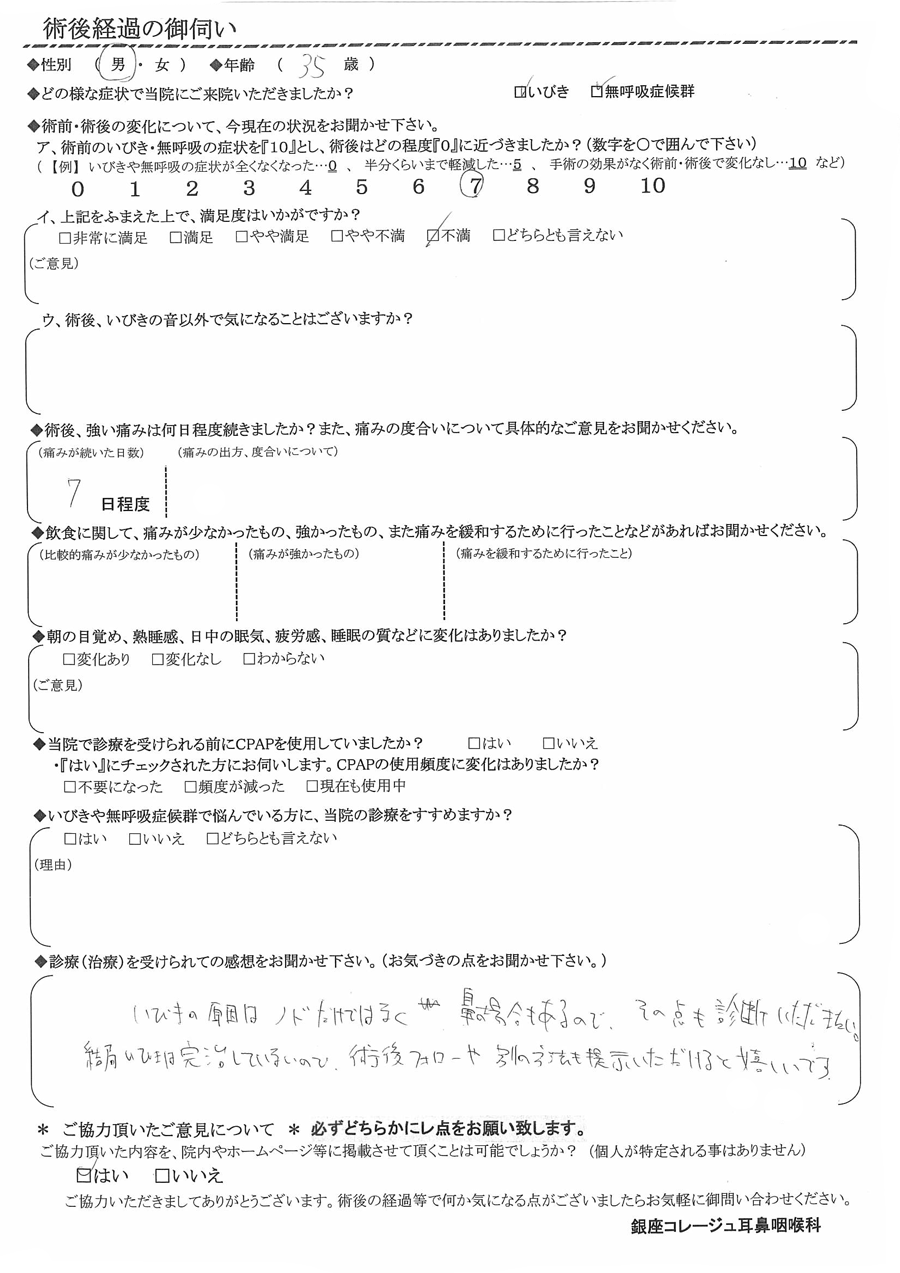 術後経過の御伺い
◆性別 ( 男 ・ 女 ) ◆年齢 ( 35 歳 )
◆どの様な症状で当院にご来院いただきましたか? ☑いびき ☑無呼吸症候群
◆術前・術後の変化について、今現在の状況をお聞かせ下さい。
ア、術前のいびき・無呼吸の症状を『10』とし、術後はどの程度『0』に近づきましたか?(数字を〇で囲んで下さい)
(【例】いびきや無呼吸の症状が全くなくなった…0 、 半分くらいまで軽減した…5 、 手術の効果がなく術前・術後で変化なし…10 など)
0 1 2 3 4 5 6 7 8 9 10
イ、上記をふまえた上で、満足度はいかがですか?
□非常に満足 □満足 □やや満足 □やや不満 ☑不満 □どちらとも言えない
(ご意見)
ウ、術後、いびきの音以外で気になることはございますか?
◆術後、強い痛みは何日程度続きましたか?また、痛みの度合いについて具体的なご意見をお聞かせください。
(痛みが続いた日数) (痛みの出方、度合いについて)
7 日程度
◆飲食に関して、痛みが少なかったもの、強かったもの、また痛みを緩和するために行ったことなどがあればお聞かせください。
(比較的痛みが少なかったもの) (痛みが強かったもの) (痛みを緩和するために行ったこと)
◆朝の目覚め、熟睡感、日中の眠気、疲労感、睡眠の質などに変化はありましたか?
□変化あり □変化なし □わからない
(ご意見)
◆当院で診療を受けられる前にCPAPを使用していましたか? □はい □いいえ
・『はい』にチェックされた方にお伺いします。CPAPの使用頻度に変化はありましたか?
□不要になった □頻度が減った □現在も使用中
◆いびきや無呼吸症候群で悩んでいる方に、当院の診療をすすめますか?
□はい □いいえ □どちらとも言えない
(理由)
◆診療(治療)を受けられての感想をお聞かせ下さい。(お気づきの点をお聞かせ下さい。)
いびきの原因はノドだけではなく 鼻の場合もあるので、その点も診断いただきたい。
結局いびきは完治していないので、術後フォローや別の方法も提示いただけると嬉しいです。
＊ ご協力頂いたご意見について ＊ 必ずどちらかにレ点をお願い致します。
ご協力頂いた内容を、院内やホームページ等に掲載させて頂くことは可能でしょうか? (個人が特定される事はありません)
☑はい □いいえ
ご協力いただきましてありがとうございます。術後の経過等で何か気になる点がございましたらお気軽に御問い合わせください。
銀座コレージュ耳鼻咽喉科